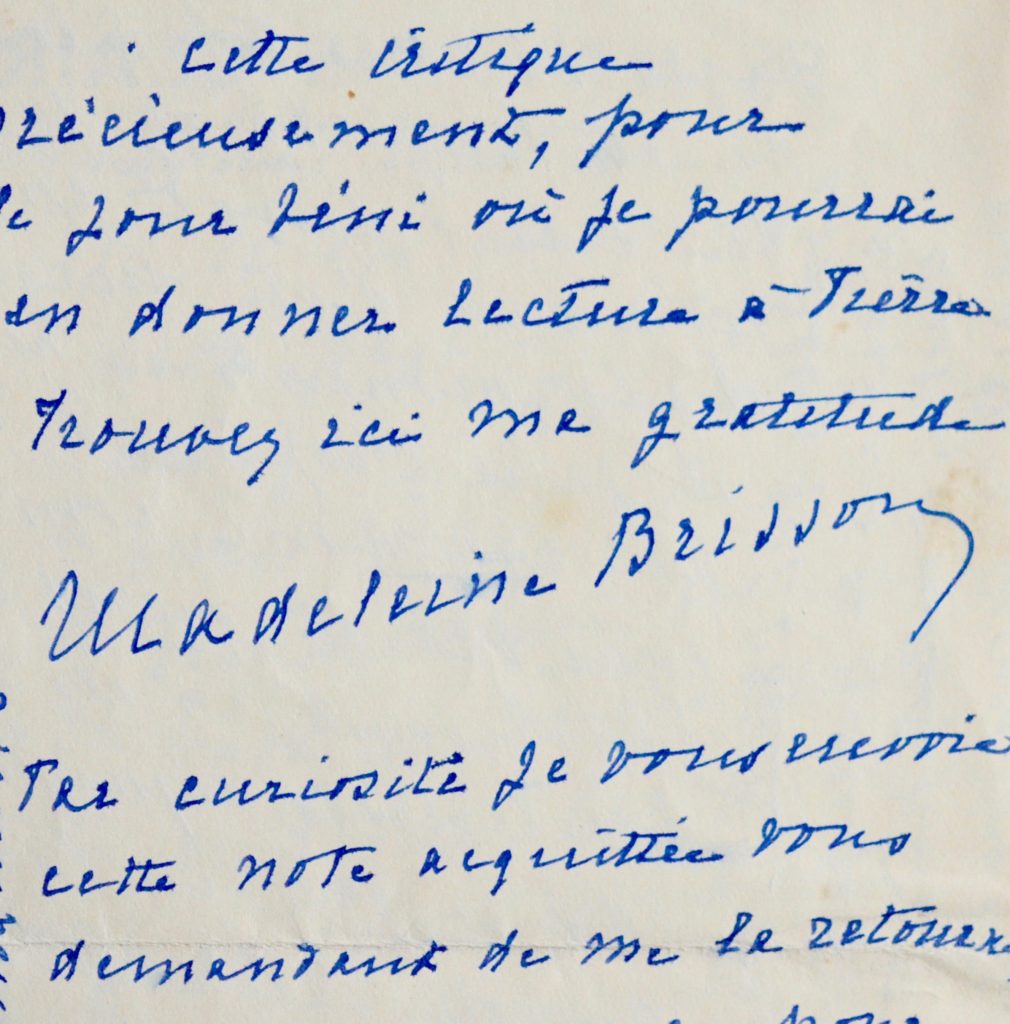 cette critique
précieusement, pour
le jour béni où je pourrai
en donner lecture à Pierre
Trouvez ici ma gratitude
Madeleine Brisson
Par curiosité je vous envoie
cette note acquittée vous
demandant de me la retourner
pour